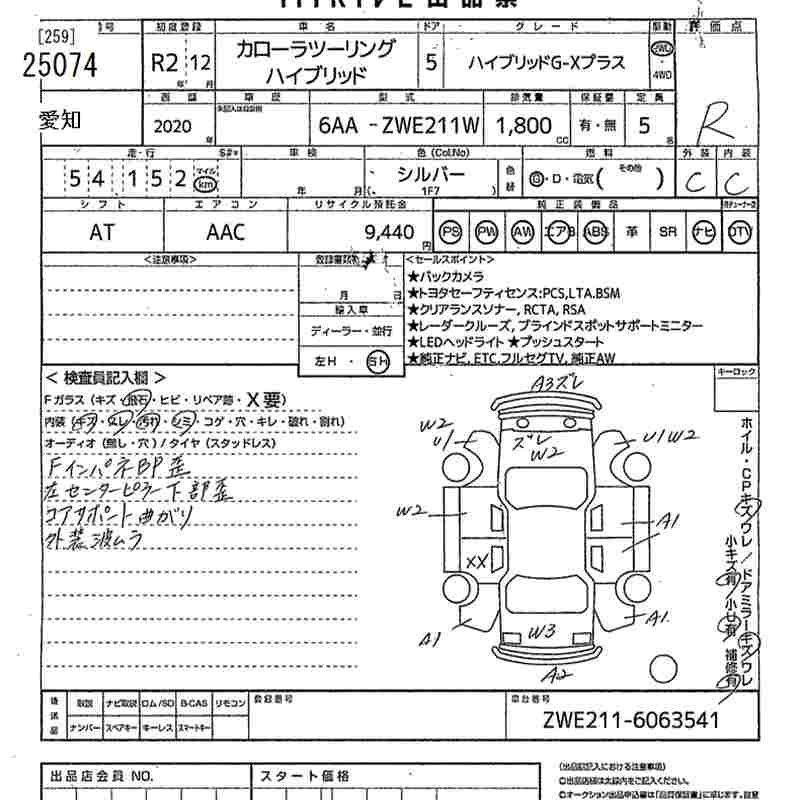 [259]
号 初度登録 車名 ドア グレード 駆動 評価点
25074 R2 12 カローラツーリング ハイブリッド 5 ハイブリッドG-Xプラス 2WD 4WD
年 月
愛知 西暦 車歴 型式 排気量 保証書 定員
2020 年 6AA - ZWE211W 1,800 CC 有・無 5 名 R
走・行 S#* 車検 色(Col.No) 燃料 外装 内装
54152 マイル km 年 月 シルバー ( 1F7 ) 色替 G・D・電気( その他 ) C C
シフト エアコン リサイクル預託金 純正装備品
AT AAC 9,440 円 PS PW AW エアB ABS 革 SR ナビ TV
<注意事項> <セールスポイント>
★バックカメラ
月 日 ★トヨタセーフティセンス:PCS,LTA.BSM
輸入車 ★クリアランスソナー, RCTA, RSA
ディーラー・並行 ★レーダークルーズ, ブラインドスポットサポートミニター
★LEDヘッドライト ★プッシュスタート
左H・ H ★純正ナビ, ETC.フルセグTV, 純正AW
< 検査員記入欄 > キーロック
Fガラス (キズ・飛石・ヒビ・リペア跡・X要)
内装 (キズ・スレ・汚れ・シミ・コゲ・穴・キレ・破れ・割れ)
オーディオ (無し・穴) / タイヤ (スタッドレス)
FインパネBP歪
左センターピラー下部歪
コアサポート曲がり
外装波ムラ
A3ズレ
W2 U1 ズレ W2 U1W2
W2 A1
XX
A1 W3 A1.
A2
ホイル・CPキズワレ/ドアミラーキズワレ
小キズ有 小凹有 補修有
後送品 取説 ナビ取説 ロム/SD B-CAS リモコン 登録番号 車台番号
ナンバー スペアキー キーレス スマートキー ZWE211-6063541
出品店会員 NO. スタート価格 (出品票記入における注意事項)
◎出品店様は太線内をご記入ください。